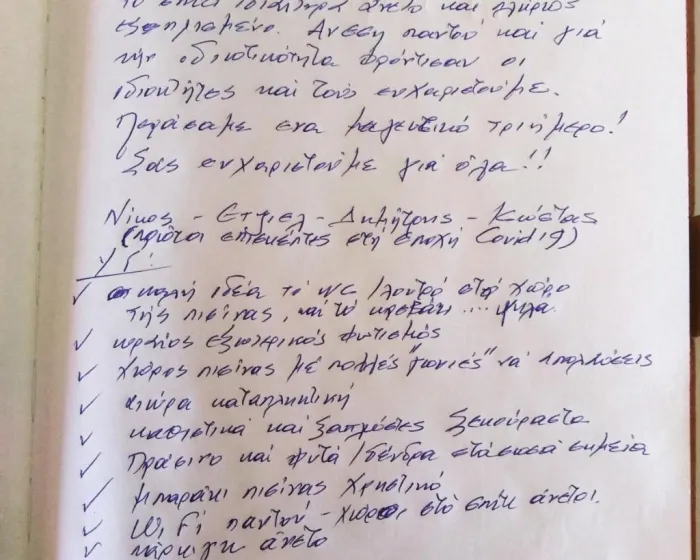 το σπίτι ιδιαίτερα άνετο και πλήρως
εξοπλισμένο. Άνεση παντού και για
την ιδιωτικότητα φρόντισαν οι
ιδιοκτήτες και τους ευχαριστούμε.
Περάσαμε ενα μαγευτικό τριήμερο!
Σας ευχαριστούμε για όλα!!
Νίκος - Ετφιελ - Δημήτρης - Κώστας
(πρώτοι επισκέπτες στη εποχή Covid 19)
ΥΓ:
✓ καλή ιδέα το WC / λουτρό στο χώρο
της πισίνας, και το κρεβάτι .... ψηλά.
✓ ωραίος εξωτερικός φωτισμός
✓ Χώρος πισίνας με πολλές "γωνιές" να απολαύσεις
✓ αιώρα καταπληκτική
✓ καθιστικά και ξαπλώστες ξεκούραστα
✓ Πράσινο και φυτά / δένδρα στα σωστά σημεία
✓ μπαράκι πισίνας χρηστικό
✓ Wi Fi παντού - χώροι στο σπίτι άνετοι.
✓ πάρκιγκ άνετο